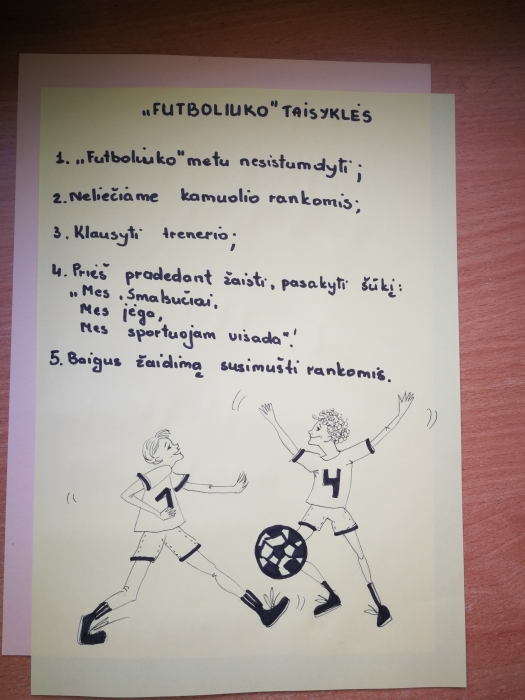 „FUTBOLIUKO" TAISYKLĖS
1. „Futboliuko" metu nesistumdyti;
2. Neliečiame kamuolio rankomis;
3. Klausyti trenerio;
4. Prieš pradedant žaisti, pasakyti šūkį:
„Mes, Smalsučiai,
Mes jėga,
Mes sportuojam visada".!
5. Baigus žaidimą susimušti rankomis.
1
4